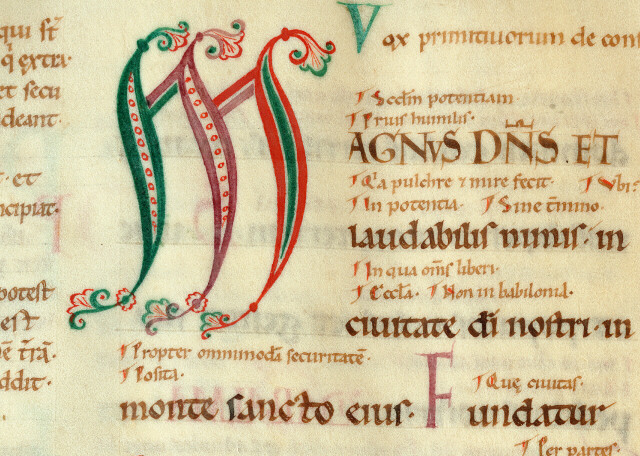 qui st̄
q̄ ęxtra
et secu
deant.
t. et
ncipiat.
potest
est
nē t̄rā.
ddit.
Vox primitiuorum de cons
Scd̄m potentiam
Prius humilis.
MAGNVS DN̄S. ET
Q'a pulchre ⁊ mire fecit. Vbi?
In potentia. Sine t̄mino.
laudabilis nimis. in
In qua om̄s liberi.
Ęccl̄a. Non in babilonia.
ciuitate dī nostri. in
Propter omnimodā securitatē.
Posita.
monte sancto eius. Fundatur
Quę ciuitas.
Per partes.